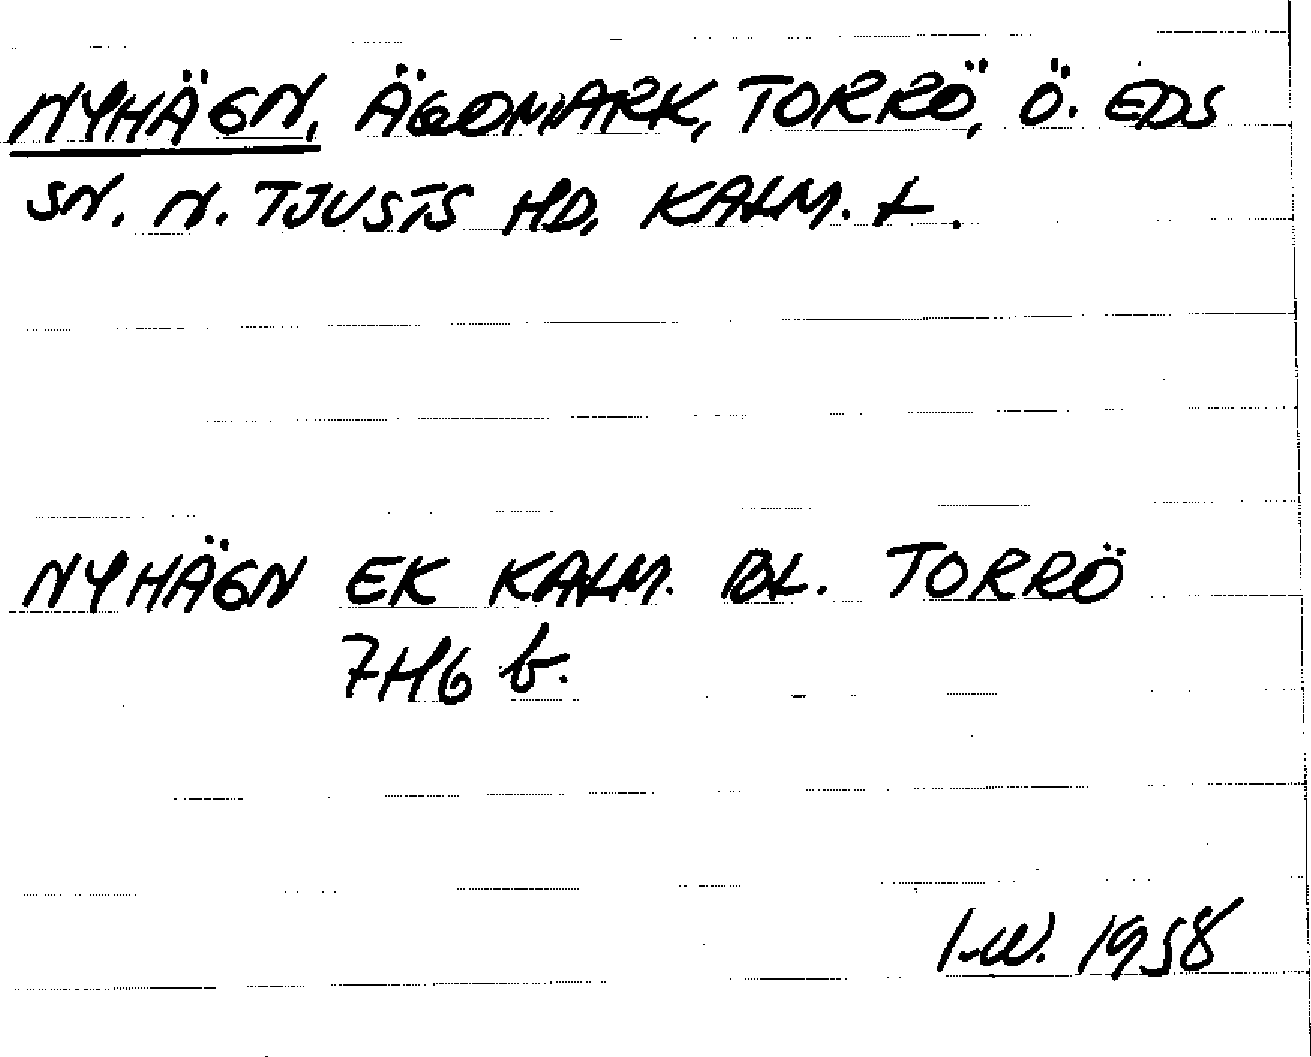 NYHÄGN, ÄGOMARK, TORRÖ, Ö. EDS
SN. N. TJUSTS HD, KALM. L.
NYHÄGN EK KALM. BL. TORRÖ
7H6 b.
I.W. 1958